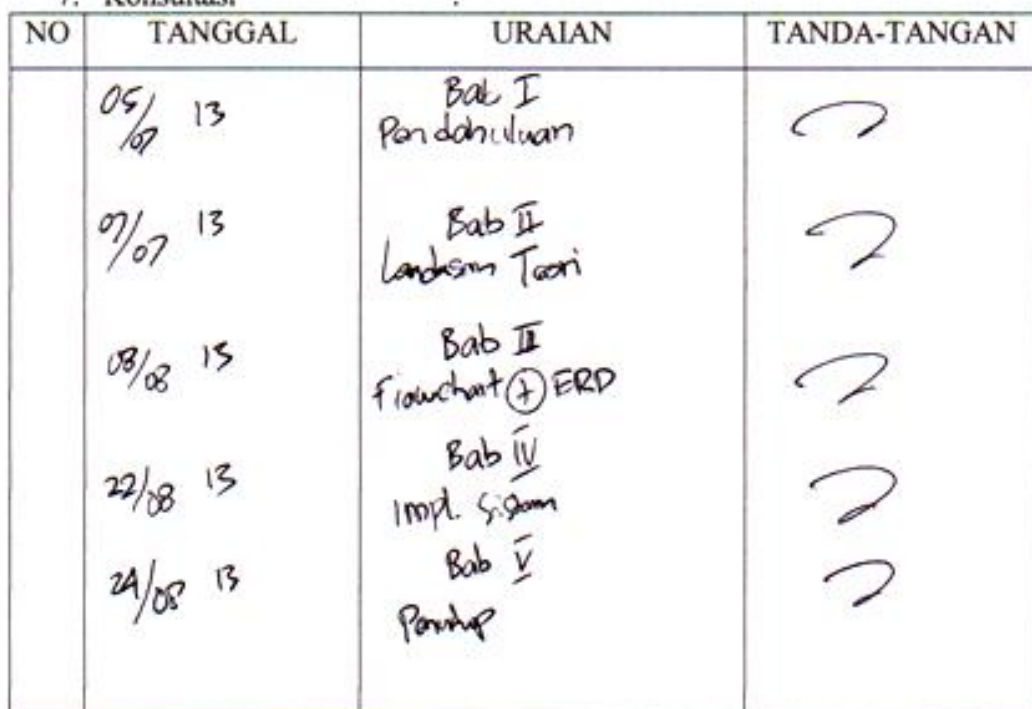 7. Konsultasi :
NO TANGGAL URAIAN TANDA-TANGAN
05/07 13 Bab I
Pendahuluan
07/07 13 Bab II
Landasan Teori
08/08 13 Bab III
Flowchart + ERD
22/08 13 Bab IV
Impl. Sistem
24/08 13 Bab V
Penutup